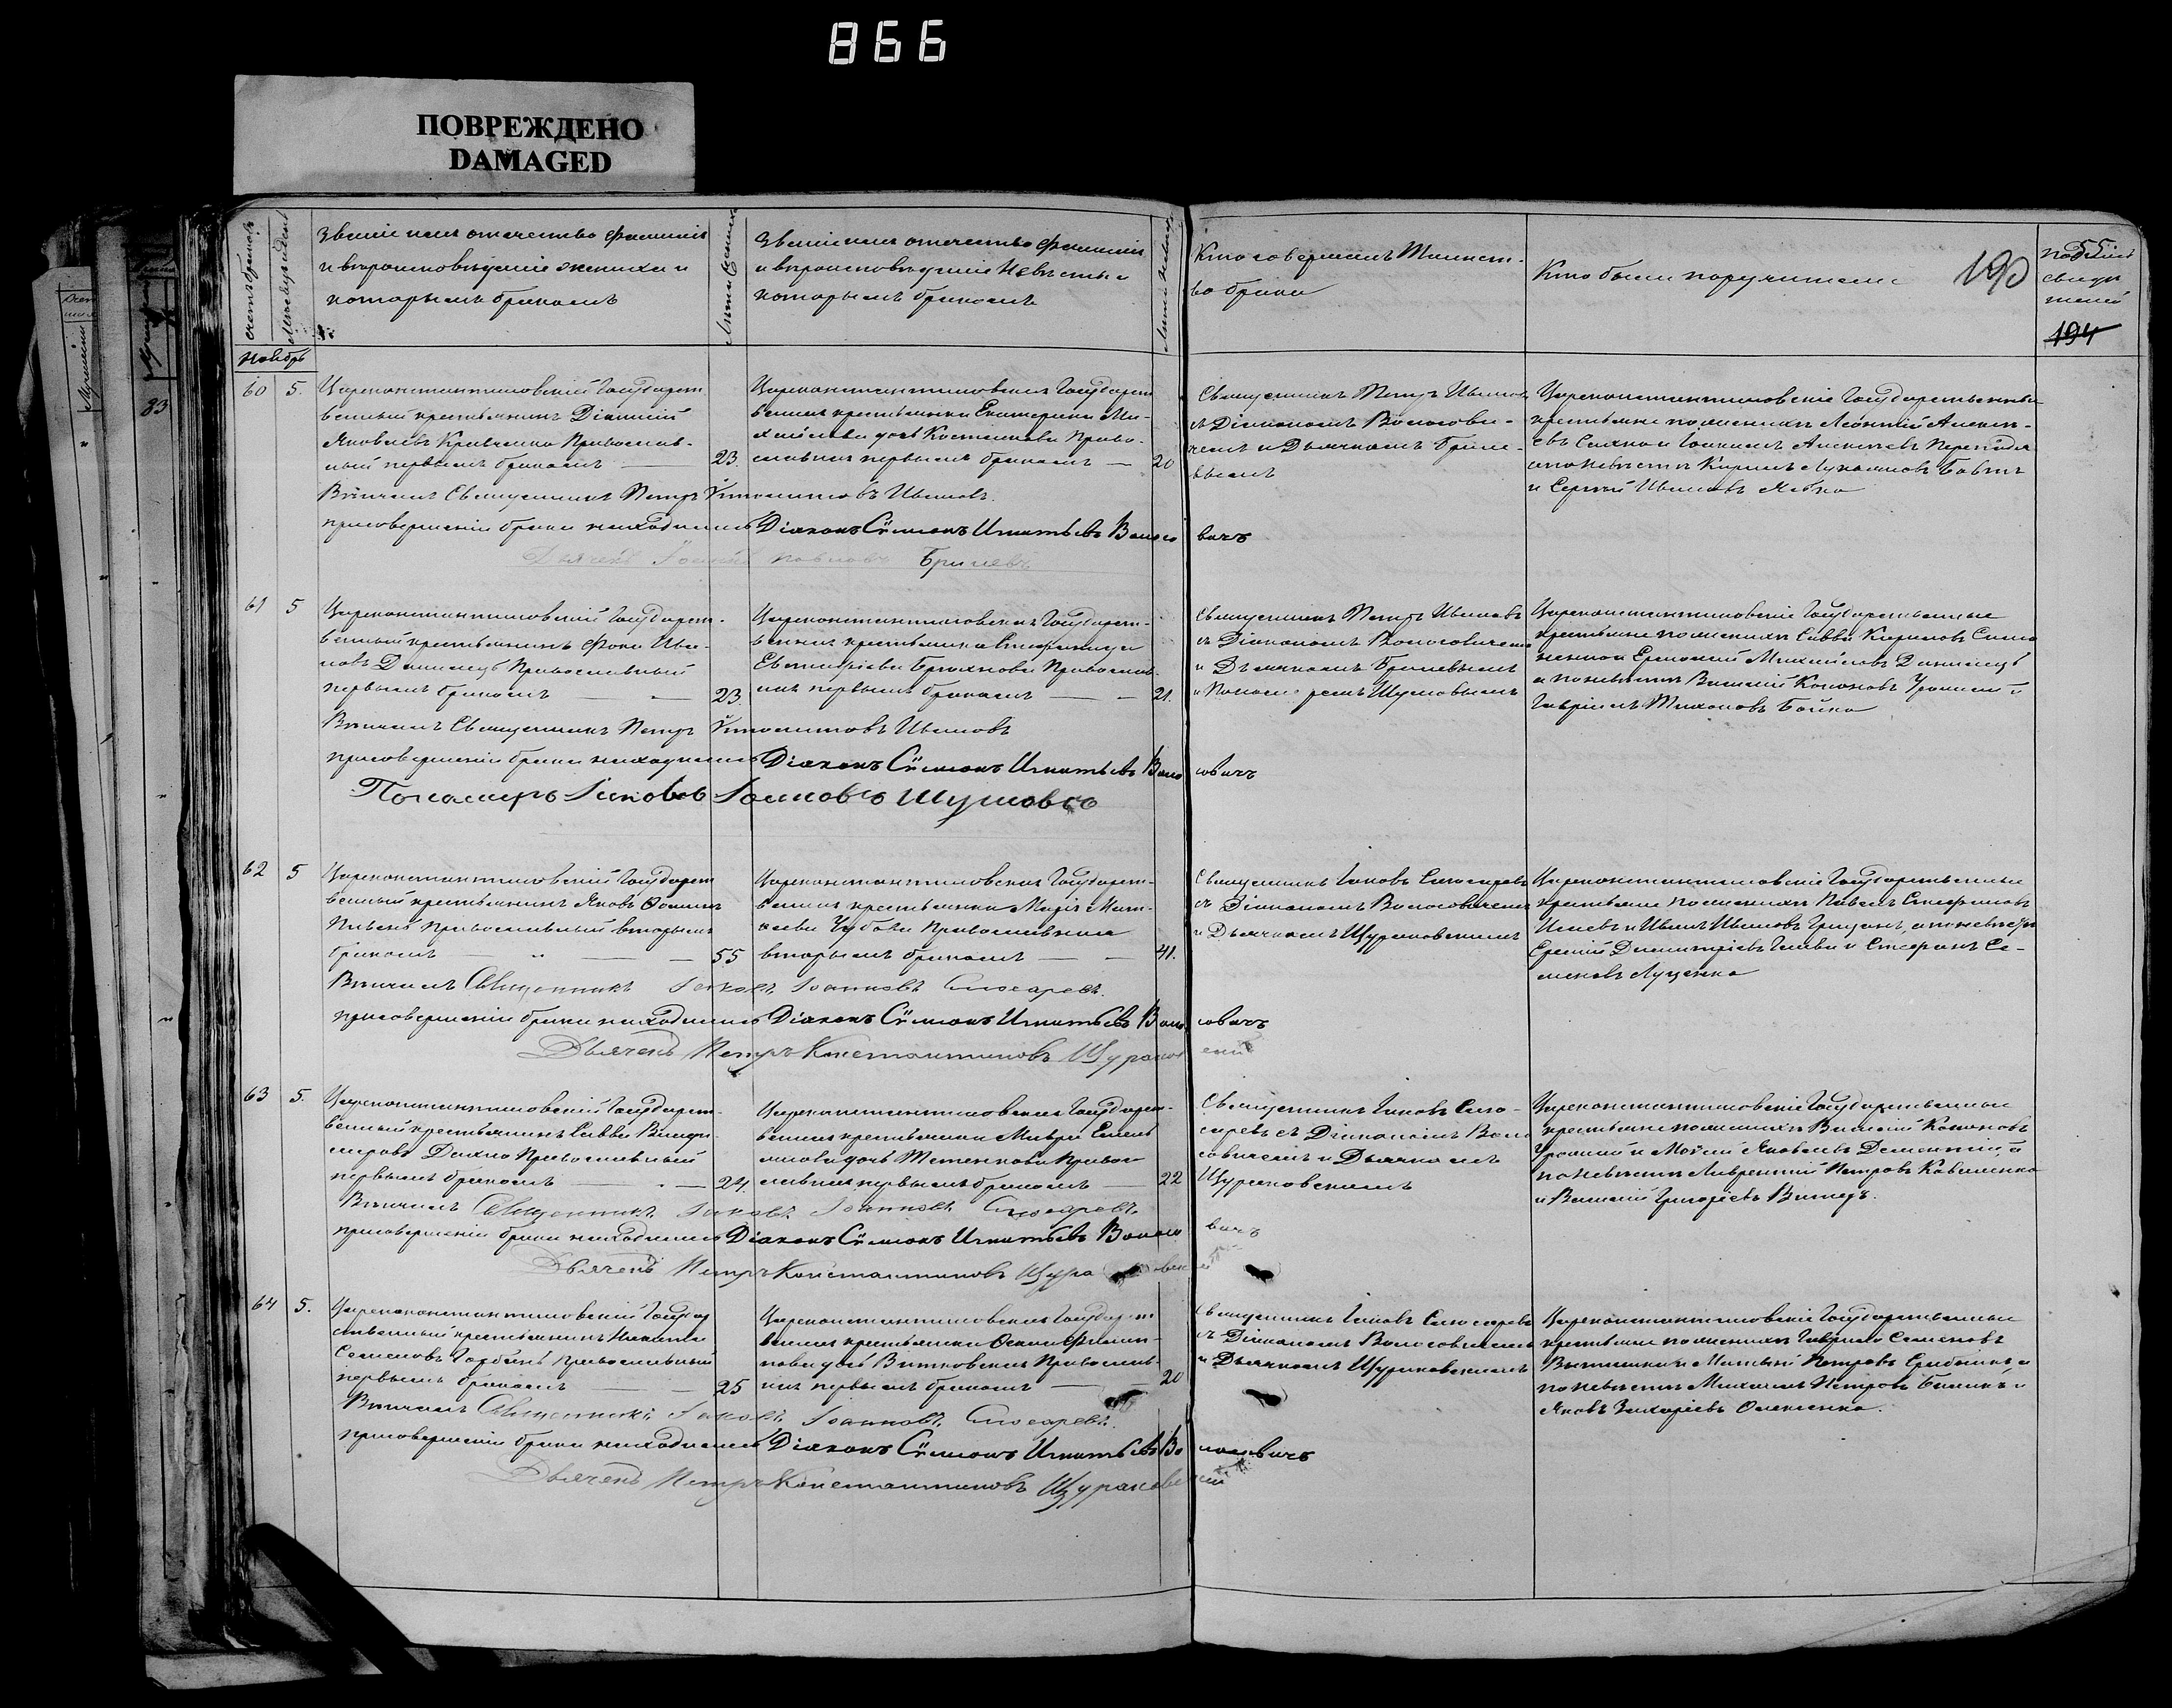 866
ПОВРЕЖДЕНО
DAMAGED
83
счетъ браковъ
Мѣсяцъ и день
Званіе имя отчество фамилія
и вѣроисповѣданіе жениха и
которымъ бракомъ
Лѣта жениха
Званіе имя отчество фамилія
и вѣроисповѣданіе Невѣсты и
которымъ бракомъ
Лѣта невѣсты
Кто совершалъ Таинст-
во брака
Кто были поручители
190
55
свидѣ
телей
194
Ноябрь
60
5.
Цареконстантиновскій Государст
венный крестьянинъ Діонисій
Яковлевъ Кравченко Православ-
ный первымъ бракомъ
23.
Цареконстантиновская Государст
венная крестьянка Екатерина Ми-
хайлова дочь Костенкова Право-
славная первымъ бракомъ
20
Священникъ Петръ Ивановъ
съ Діакономъ Волосови-
чемъ и Дьячкомъ Бриле-
вымъ
Цареконстантиновскіе Государственные
крестьяне по женихѣ Леонтій Алексѣ-
евъ и Іоакимъ Алексѣевъ
а по невѣстѣ Кирилъ Лукьяновъ
и Сергій Ивановъ Ябко
Вѣнчалъ Священникъ Петръ Ивановъ.
при совершеніи брака находились Діаконъ Сѵмеонъ Игнатьевъ Волосо вичъ
Дьячекъ Іоаннъ Павловъ Брилевъ
61
5
Цареконстантиновскій Государст-
венный крестьянинъ Фока Ива-
новъ Данилецъ Православный
первымъ бракомъ
23.
Цареконстантиновская Государст-
венная крестьянка Стефанида
Евстафіева Православ-
ная первымъ бракомъ
21.
Священникъ Петръ Ивановъ
съ Діакономъ Волосовичемъ
и Дьячкомъ Брилевымъ
и Пономаремъ Шумовымъ
Цареконстантиновскіе Государственные
крестьяне по женихѣ Савва Кириловъ
Михайловъ Данилецъ
а по невѣстѣ Василій Кононовъ и
Гавріилъ Тихоновъ Бойко
Вѣнчалъ Священникъ Петръ Ивановъ
при совершеніи брака находились Діаконъ Сѵмеонъ Игнатьевъ Воло совичъ
Пономарь Іаковъ Іоанновъ Шумовъ
62
5
Цареконстантиновскій Государст
венный крестьянинъ Яковъ Ѳоминъ
Пивень Православный вторымъ
бракомъ
55
Цареконстантиновская Государст-
венная крестьянка Марія Мат-
вѣева Чубова Православная
вторымъ бракомъ
41.
Священникъ Іаковъ Слюсаревъ
съ Діакономъ Волосовичемъ
и Дьячкомъ Щураковскимъ
Цареконстантиновскіе Государственные
крестьяне по женихѣ Павелъ Стефановъ
и Иванъ Ивановъ а по невѣстѣ
Димитріевъ и Стефанъ Се-
меновъ Луценко
Вѣнчалъ Священникъ Іаковъ Іоанновъ Слюсаревъ.
при совершеніи брака находились Діаконъ Сѵмеонъ Игнатьевъ Воло совичъ
Дьячекъ Петръ Константиновъ Щураков скій
63
5.
Цареконстантиновскій Государст-
венный крестьянинъ Савва
Дахно Православный
первымъ бракомъ
24.
Цареконстантиновская Государст-
венная крестьянка Мавра Емель
янова дочь Тетенкова Право
славная первымъ бракомъ
22
Священникъ Іаковъ Слю-
саревъ съ Діакономъ Воло
совичемъ и Дьячкомъ
Щураковскимъ
Цареконстантиновскіе Государственные
крестьяне по женихѣ Василій Кононовъ
и Мойсей Яковлевъ а
по невѣстѣ Лаврентій Петровъ Коваленко
и Василій Григоріевъ
Вѣнчалъ Священникъ Іаковъ Іоанновъ Слюсаревъ.
при совершеніи брака находились Діаконъ Сѵмеонъ Игнатьевъ Волосо вичъ
Дьячекъ Петръ Константиновъ Щураковскій
64
5.
Цареконстантиновскій Государ
ственный крестьянинъ Никита
Семеновъ Горбань Православный
первымъ бракомъ
25
Цареконстантиновская Государст
венная крестьянка Филип-
пова дочь Витковская Православ-
ная первымъ бракомъ
20
Священникъ Іаковъ Слюсаревъ
съ Діакономъ Волосовичемъ
и Дьячкомъ Щураковскимъ
Цареконстантиновскіе Государственные
крестьяне по женихѣ Гаврило Семеновъ
и Петровъ а
по невѣстѣ Михаилъ Петровъ и
Яковъ Захаріевъ Олексенко.
Вѣнчалъ Священникъ Іаковъ Іоанновъ Слюсаревъ.
при совершеніи брака находились Діаконъ Сѵмеонъ Игнатьевъ Во лосовичъ
Дьячекъ Петръ Константиновъ Щураковскій